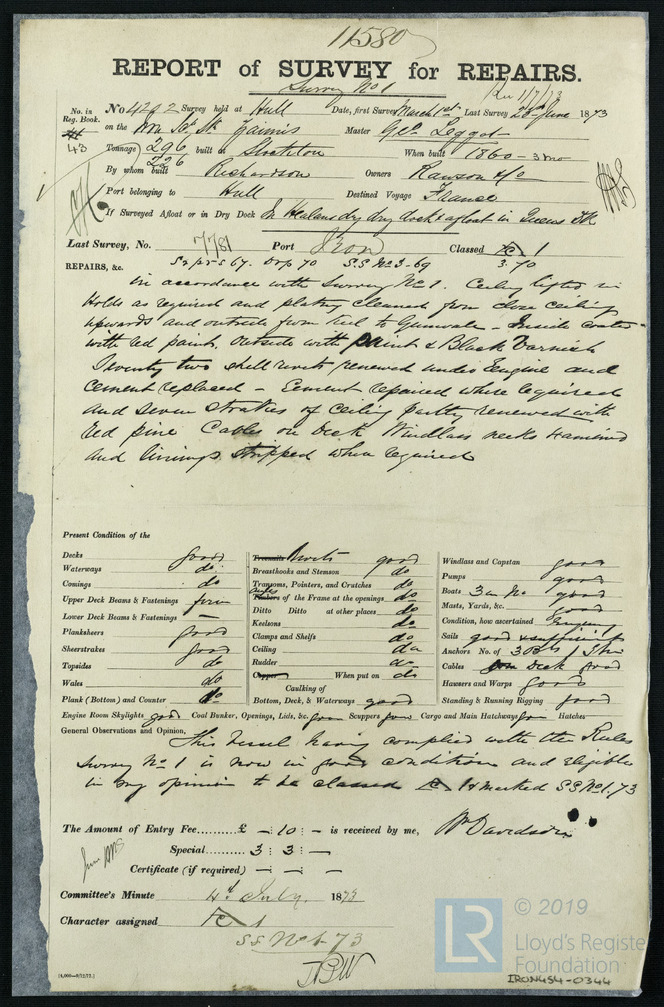 11580
REPORT of SURVEY for REPAIRS.
Survey No 1
Rec 1/7/73
No. in Reg. Book. No 4292 Survey held at Hull Date, first Survey March 1st Last Survey 28th June 1873
43 on the Iron Sc. Sr. Master Geo Leggot
Tonnage 296 built at Stockton When built 1860 - 3 mo
296
By whom built Richardson Owners Rawson & Co
Port belonging to Hull Destined Voyage France
If Surveyed Afloat or in Dry Dock In dry dock & afloat in Queens Dk
Last Survey, No. 7781 Port Iron Classed 1
67. 70 S.S No 3-69 3.70
REPAIRS, &c.
in accordance with Survey No 1. Ceiling lifted in
Holds as required and plating cleaned from close ceiling
upwards and outside from keel to Gunwale - Inside coated
with red paint, outside with paint & Black Varnish
Seventy two shell rivets renewed under Engine and
cement replaced - Cement repaired where required
and seven strakes of ceiling partly renewed with
red pine Cables on Deck Windlass necks examined
and linings stripped where required
Present Condition of the
Decks good
Waterways do
Comings do
Upper Deck Beams & Fastenings good
Lower Deck Beams & Fastenings —
Planksheers good
Sheerstrakes good
Topsides do
Wales do
Plank (Bottom) and Counter do
Treenails Rivets good
Breasthooks and Stemson do
Transoms, Pointers, and Crutches do
Timbers of the Frame at the openings do
Ditto Ditto at other places do
Keelsons do
Clamps and Shelfs do
Ceiling do
Rudder do
Copper When put on do
Caulking of
Bottom, Deck, & Waterways good
Windlass and Capstan good
Pumps good
Boats 3 in No good
Masts, Yards, &c. good
Condition, how ascertained
Sails good & sufficient
Anchors No. of 3 Brs 1 Strm
Cables on Deck good
Hawsers and Warps good
Standing & Running Rigging good
Engine Room Skylights good Coal Bunker, Openings, Lids, &c. good Scuppers good Cargo and Main Hatchways good Hatches
General Observations and Opinion,
This Vessel having complied with the Rules
Survey No 1 is now in good condition and eligible
in my opinion to be classed 1 & marked SS No 1.73
The Amount of Entry Fee.......... £ - : 10 : - is received by me, Wm Davidson
Special.......... 3 : 3 : —
Certificate (if required) — : — : —
Committee's Minute 4th July. 1873
Character assigned 1
SS No 1-73
© 2019
LR
Lloyd's Register
Foundation
IRON454-0344